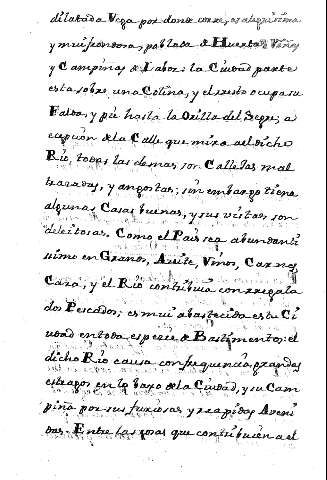 dilatada Vega por donde corre, es alegrissima
y mui frondosa, poblada de Huertas Viñas
y Campiñas de Labor: la Ciudad parte
esta sobre una Colina, y el resto ocupa su
Falda, y pie hasta la Orilla del Segre; a
cepcion de la Calle que mira al dicho
Rio, todas las demas son Callejas mal
trazadas, y angostas; sin embargo tiene
algunas Casas buenas, y sus vistas son
deleitosas. Como el Pais sea abundanti
simo en Granos, Azeite, Vinos, Carnes,
Caza, y el Rio contribuia con regala
dos Pescados; es mui abastecida esta Ci
udad en toda especie de Bastimento; el
dicho Rio causa con frequencia grandes
estragos en lo bajo de la Ciudad, y su Cam
piña por sus furiosas y rapidas Aveni
das. Entre las cosas que contribuien a el